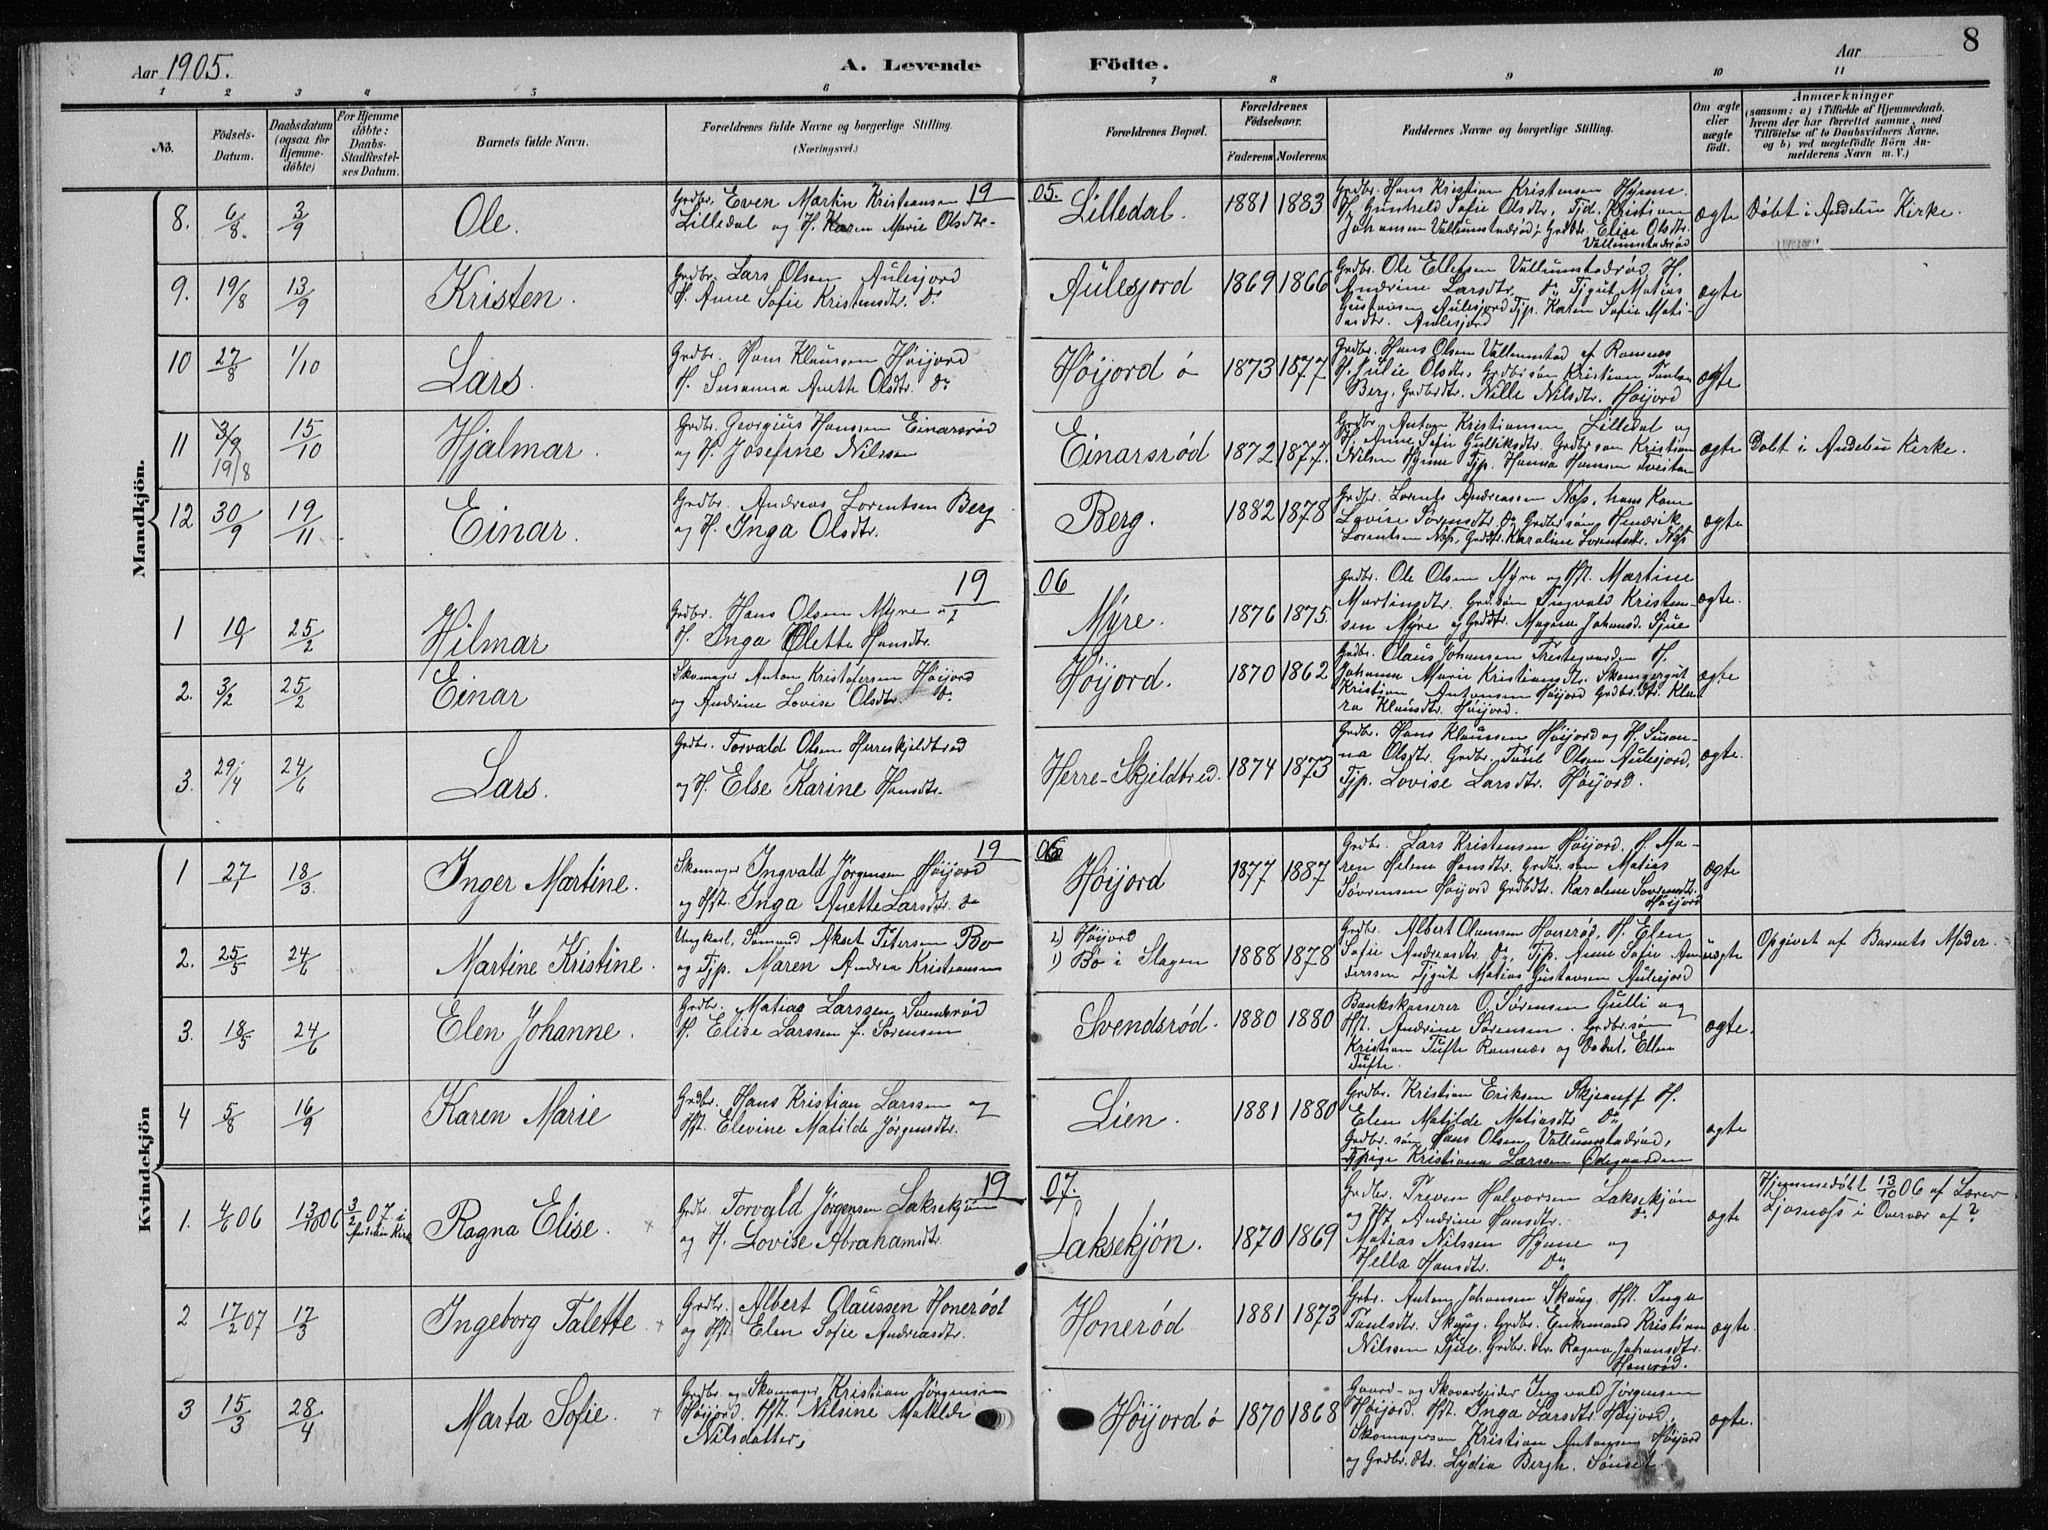 Aar 1905.
A. Levende Födte.
Aar
8
1 2 3 4 5 6 7 8 9 10 11
No.
Födsels-Datum.
Daabsdatum (ogsaa for Hjemmedøbte)
For Hjemmedøbte: Daabs-Stadfæstelses Datum.
Barnets fulde Navn.
Forældrenes fulde Navne og borgerlige Stilling.
(Næringsvei.)
Forældrenes Bopæl.
Forældrenes Födselsaar.
Faderens Moderens.
Faddernes Navne og borgerlige Stilling.
Om ægte eller uægte født.
Anmærkninger
(saasom: a) i Tilfælde af Hjemmedaab.
hvem der har forrettet samme, med
Tilföielse af to Daabsvidners Navne.
og b) ved uægtefödte Börn Anmelderens Navn m. V.)
Mandkjön.
1905.
8. 6/8 3/9 Ole. Grdbr. Even Martin Kristiansen
Lilledal og H. Karen Marie Olsdtr. Lilledal. 1881 1883 Grdbr. Hans Kristian Kristensen Hynne
H. Gunhild Sofie Olsdtr, Tjd. Kristian
Johansen Vallumstadrød, Grdbr. Elise Olsdtr.
Vallumstadrød ægte Døbt i Andebu Kirke.
9. 19/8 13/9 Kristen. Grdbr. Lars Olsen Aulesjord
H. Anne Sofie Kristensdtr. Do Aulesjord 1869 1866 Grdbr. Ole Ellefsen Vallumstadrød, H.
Andrine Larsdtr. Do Tjgut Matias
Gustavsen Aulesjord Tjp. Karen Sofie Matiasdtr. Aulesjord ægte
10 27/8 1/10 Lars. Grdbr. Hans Klausen Høijord
H. Susanna Anette Olsdtr. Do Høijord ø 1873 1877 Grdbr. Hans Olsen Vallumstad af Ramnæs
H. Julie Olsdtr, Grdbrsøn Kristian Paulsen
Berg, Grdbrdtr. Nille Nilsdtr. Høijord ægte
11 3/9 19/8 15/10 Hjalmar. Grdbr. Georgius Hansen Einarsrød
og H. Josefine Nilsen Einarsrød 1872 1877. Grdbr. Anton Kristiansen Lilledal og
H. Anne Sofie Gulliksdtr. Grdbr søn Kristian
Nilsen Hynne Tjp. Hanna Hansen ægte Døbt i Andebu Kirke.
12 30/9 19/11 Einar. Grdbr. Andreas Lorentsen Berg
og H. Inga Olsdtr. Berg. 1882 1878 Grdbr. Lorents Andreassen Næs, hans Kone
Lovise Sørensdtr. Do Grdbr søn Hendrik
Lorentsen Næs, Grdbr. Karoline Lorentsdtr. Næs ægte
1906
1 19/1 25/2 Hilmar Grdbr. Hans Olsen Myre og
H. Inga Olette Hansdtr. Myre. 1876 1875. Grdbr. Ole Olsen Myre og Hst. Martine
Martinsdtr. Grdbr søn Ingvald Kristensen Myre og Grdbdtr. Magna Johansd. Gjue ægte.
2. 3/2 25/2 Einar Skomager Anton Kristofersen Høijord
og Andrine Lovise Olsdtr. Do. Høijord. 1870 1862 Grdbr. Claus Johansen Prestegaarden H.
Johanna Marie Kristiansdtr. Skomagergut
Kristian Antonsen Høijord Grdbr. dtr. Klara Klausdtr. Høijord. ægte
3. 29/4 24/6 Lars. Grdbr. Torvald Olsen Herreskjeldbred
og H. Else Karine Hansdtr. Herre-Skjeldbred. 1874 1873 Grdbr. Hans Klausen Høijord og H. Susanna Olsdtr. Grdbr. Paul Olsen Aulesjord,
Tjp. Lovise Larsdtr. Høijord. ægte.
Kvindekjön
1906
1 27/1 18/3. Inger Martine. Skomager Ingvald Jörgensen Høijord
og Hst. Inga Anette Larsdtr. Do Høijord 1877 1887 Grdbr. Lars Kristensen Høijord, H. Maren Helene Hansdtr. Grdbr. søn Matias
Sørensen Høijord Grdbdtr. Karoline Sørensdtr.
Høijord ægte
2. 25/5 24/6 Martine Kristine. Ungkarl, Sømand Aksel Petersen Bo
og Tjp. Maren Andrea Kristiansen 2) Høijord
1) Bo i Slagen 1888 1878 Grdbr. Albert Olaussen Honerød, H. Elen
Sofie Andreasdtr. Do, Tjp. Anne Sofie Anderssen Tjgut Matias Gustavsen Aulesjord uægte Opgivet af Barnets Moder.
3. 18/5 24/6 Elen Johanne. Grdbr. Matias Larssen Svendsrød
H. Elise Larssen f. Sørensen Svendsrød. 1880 1880 Bankkaserer O. Sørensen Gulli og
Hst. Andrine Sørensen. Grdbr. søn
Kristian Tufte Ramnæs og Ellen
Tufte. ægte.
4 5/8 16/9 Karen Marie Grdbr. Hans Kristian Larssen og
Hst. Elevine Matilde Jørgensdtr. Lien. 1881 1880 Grdbr. Kristian Eriksen Skjeauff H.
Elen Matilde Matiasdtr Do
Grdbr. søn Hans Olsen Vallumstadrød,
Tjpige Kristiana Larssen Ødegaarden ægte
1907.
1. 4/6 06 13/10 06 3/2 07 i Andebu Kirke Ragna Elise. Grdbr. Torvald Jørgensen Laksekjøn
og H. Lovise Abrahamsdtr. Laksekjøn. 1870 1869 Grdbr. Treven Halvorsen Laksekjøn
og Hst. Andrine Hansdtr. Do
Matias Nilssen Hynne og
Hella Hansdtr. Do ægte Hjemmedøbt 13/10 06 af Lærer
Ljosnæs i Overvær af?
2 17/2 07 17/3 Ingeborg Talette Grdbr. Albert Olaussen Honerød
og Hst. Elen Sofie Andreasdtr. Honerød 1881 1873 Grbr. Anton Johansen Skaug. Hst. Inga
Paulsdtr. Skaug. Grdbr. Enkemand Kristian
Nilssen Gjue. Grdbr. dtr. Ragna Johansdtr.
Honerød. ægte.
3 15/3 28/4 Marta Sofie. Grdbr. og Skomager Kristian Jørgensen
Høijord. Hst. Nilsine Matilde
Nilsdatter, Høijord ø 1870 1868 Gaard- og Skovarbeider Ingvald Jörgensen
Høijord. Hst. Inga Larsdtr. Høijord,
Skomagersøn Kristian Antonsen Høijord
og Grdbr. dtr. Lydia Bergh. Sønset. ægte.